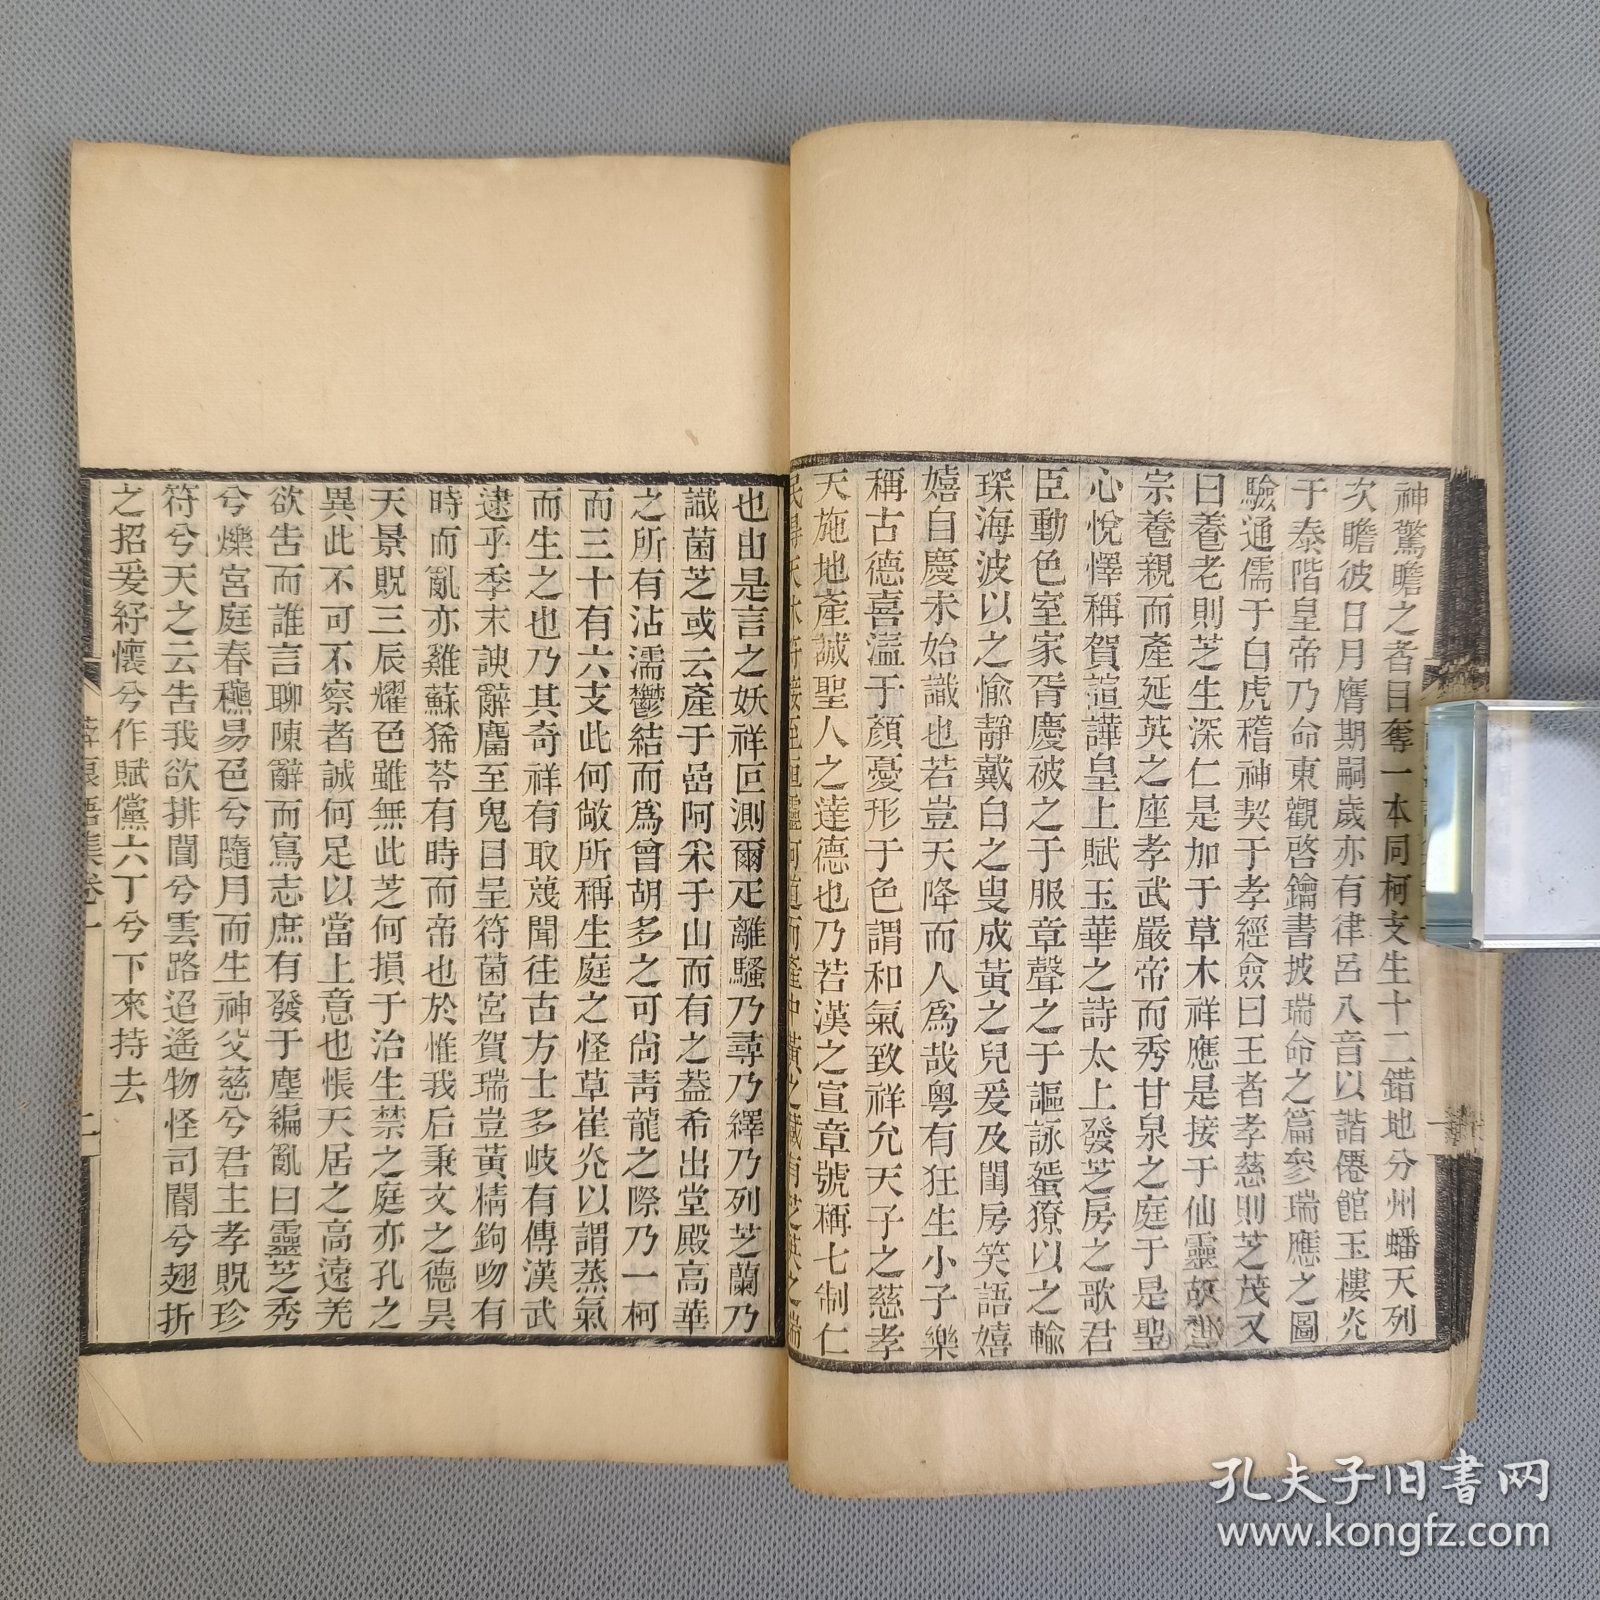 神驚瞻之者目奪一本同柯支生十二錯地分州蟠天列
次瞻彼日月膺期嗣歲亦有律呂八音以諧僊館玉樓炎
于泰階皇帝乃命東觀啓鑰書披瑞命之篇參瑞應之圖
驗通儒于白虎稽神契于孝經僉曰王者孝慈則芝茂又
曰養老則芝生深仁是加于草木祥應是接于仙靈故
宗養親而產延英之座孝武嚴帝而秀甘泉之庭于是聖
心悅懌稱賀諠譁皇上賦玉華之詩太上發芝房之歌君
臣動色室家胥慶被之于服章聲之于謳詠蜑獠以之輸
琛海波以之愉靜戴白之叟成黃之兒爰及閨房笑語嬉
嬉自慶未始識也若豈天降而人爲哉粵有狂生小子樂
稱古德喜溢于顏憂形于色謂和氣致祥允天子之慈孝
天施地產誠聖人之達德也乃若漢之宣章號稱七制仁
之瑞
也由是言之妖祥叵測爾疋離騷乃尋乃繹乃列芝蘭乃
識菌芝或云產于嵒阿采于山而有之蓋希出堂殿高華
之所有沾濡鬱結而爲曾胡多之可尚靑龍之際乃一柯
而三十有六支此何敵所稱生庭之怪草崔炎以謂蒸氣
而生之也乃其奇祥有取蔑聞往古方士多岐有傳漢武
逮乎季末諛辭麕至鬼目呈符菌宮賀瑞豈黃精鉤吻有
時而亂亦雞蘇狶苓有時而帝也於惟我后秉文之德昊
天景貺三辰耀色雖無此芝何損于治生禁之庭亦孔之
異此不可不察者誠何足以當上意也悵天居之高遠羌
欲告而誰言聊陳辭而寫志庶有發于塵編亂曰靈芝秀
兮爍宮庭春穠易邑兮隨月而生神父慈兮君主孝貺珍
符兮天之云告我欲排閶兮雲路迢遙物怪司閽兮翅折
之招爰紓懷兮作賦儻六丁兮下來持去
集卷一
孔夫子旧书网
www.kongfz.com